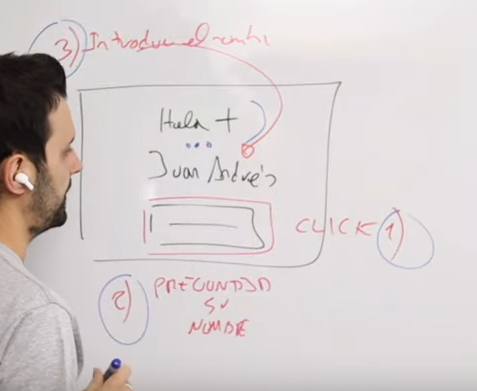 3) Introduce el nombre
Hola +
...
Juan Andrés
CLICK 1)
2) PREGUNTAR
SU
NOMBRE